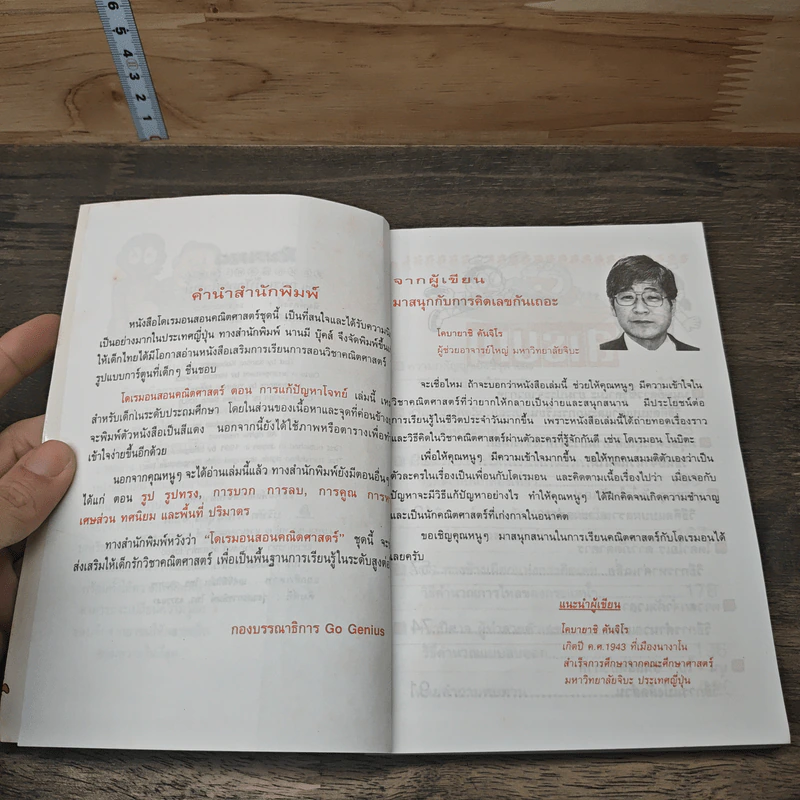 6 5 4 3 2 1
คำนำสำนักพิมพ์
หนังสือโดเรมอนสอนคณิตศาสตร์ชุดนี้ เป็นที่สนใจและได้รับความ
เป็นอย่างมากในประเทศญี่ปุ่น ทางสำนักพิมพ์ นานมี บุ๊คส์ จึงจัดพิมพ์ขึ้น
ให้เด็กไทยได้มีโอกาสอ่านหนังสือเสริมการเรียนการสอนวิชาคณิตศาสตร์
รูปแบบการ์ตูนที่เด็กๆ ชื่นชอบ
โดเรมอนสอนคณิตศาสตร์ ตอน การแก้ปัญหาโจทย์ เล่มนี้
สำหรับเด็กในระดับประถมศึกษา โดยในส่วนของเนื้อหาและจุดที่ค่อนข้าง
จะพิมพ์ตัวหนังสือเป็นสีแดง นอกจากนี้ยังได้ใช้ภาพหรือตารางเพื่อ
เข้าใจง่ายขึ้นอีกด้วย
นอกจากคุณหนูๆ จะได้อ่านเล่มนี้แล้ว ทางสำนักพิมพ์ยังมีตอนอื่นๆ
ได้แก่ ตอน รูป รูปทรง, การบวก การลบ, การคูณ การ
เศษส่วน ทศนิยม และพื้นที่ ปริมาตร
ทางสำนักพิมพ์หวังว่า “โดเรมอนสอนคณิตศาสตร์” ชุดนี้
ส่งเสริมให้เด็กรักวิชาคณิตศาสตร์ เพื่อเป็นพื้นฐานการเรียนรู้ในระดับสูงต่อ
กองบรรณาธิการ Go Genius
จากผู้เขียน
มาสนุกกับการคิดเลขกันเถอะ
โคบายาชิ คันจิโร
ผู้ช่วยอาจารย์ใหญ่ มหาวิทยาลัยจิบะ
จะเชื่อไหม ถ้าจะบอกว่าหนังสือเล่มนี้ ช่วยให้คุณหนูๆ มีความเข้าใจใน
วิชาคณิตศาสตร์ที่ว่ายากให้กลายเป็นง่ายและสนุกสนาน มีประโยชน์ต่อ
การเรียนรู้ในชีวิตประจำวันมากขึ้น เพราะหนังสือเล่มนี้ได้ถ่ายทอดเรื่องราว
และวิธีคิดในวิชาคณิตศาสตร์ผ่านตัวละครที่รู้จักกันดี เช่น โดเรมอน โนบิตะ
เพื่อให้คุณหนูๆ มีความเข้าใจมากขึ้น ขอให้ทุกคนสมมติตัวเองว่าเป็น
ตัวละครในเรื่องเป็นเพื่อนกับโดเรมอน และคิดตามเนื้อเรื่องไปว่า เมื่อเจอกับ
ปัญหาจะมีวิธีแก้ปัญหาอย่างไร ทำให้คุณหนูๆ ได้ฝึกคิดจนเกิดความชำนาญ
และเป็นนักคณิตศาสตร์ที่เก่งกาจในอนาคต
ขอเชิญคุณหนูๆ มาสนุกสนานในการเรียนคณิตศาสตร์กับโดเรมอนได้
เลยครับ
แนะนำผู้เขียน
โคบายาชิ คันจิโร
เกิดปี ค.ศ.1943 ที่เมืองนางาโน
สำเร็จการศึกษาจากคณะศึกษาศาสตร์
มหาวิทยาลัยจิบะ ประเทศญี่ปุ่น